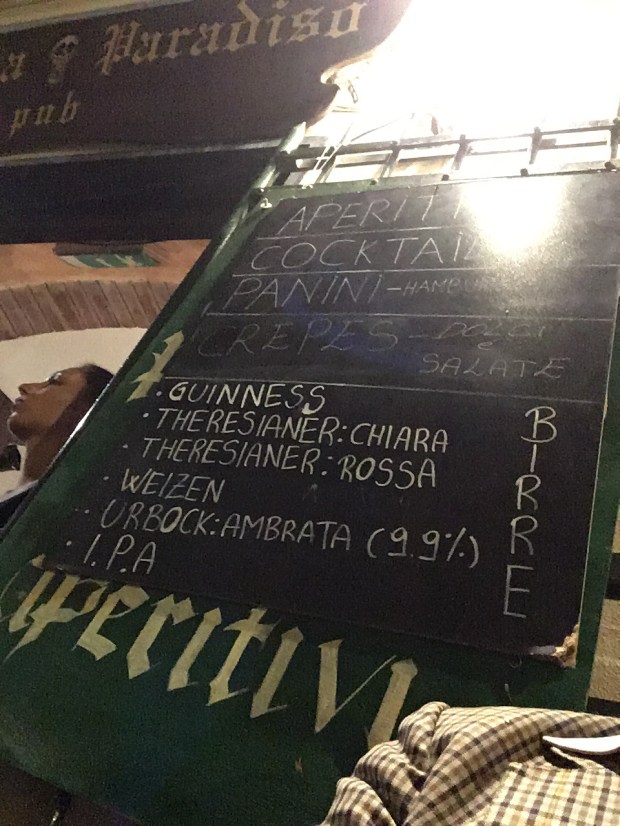 a Paradiso
pub
APERITI
COCKTAIL
PANINI - HAMBU
CREPES - DOLCI
e
SALATE
· GUINNESS
· THERESIANER: CHIARA
· THERESIANER: ROSSA
· WEIZEN
· URBOCK: AMBRATA (9.9%)
· I.P.A
BIRRE
Aperitivi